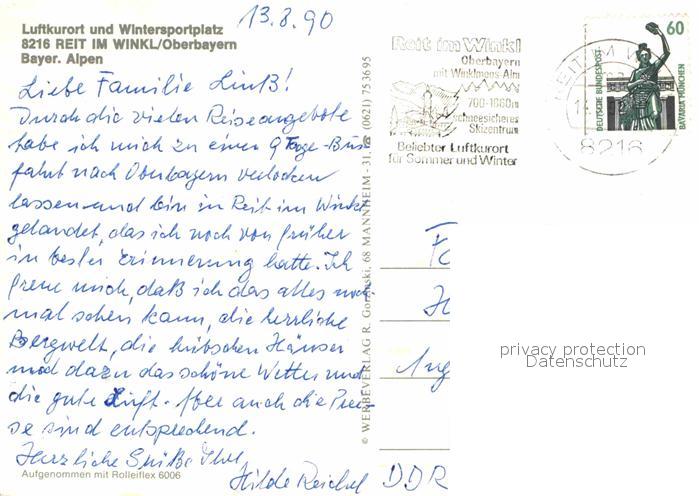 13.8.90
Luftkurort und Wintersportplatz
8216 REIT IM WINKL/Oberbayern
Bayer. Alpen
Liebe Familie Linß!
Durch die vielen Reiseangebote
habe ich mich zu einer 9 Tage-Bus-
fahrt nach Oberbayern verlocken
lassen und bin in Reit im Winkl
gelandet, das ich noch von früher
in bester Erinnerung hatte. Ich
freue mich, daß ich das alles noch
mal sehen kann, die herrliche
Bergwelt, die hübschen Häuser
und dazu das schöne Wetter und
die gute Luft. Aber auch die Prei-
se sind entsprechend.
Herzliche Grüße Ihre
Hilde Reichel
Aufgenommen mit Rolleiflex 6006
© WERBEVERLAG R. Gorinski, 68 MANNHEIM - 31, ☎ (0621) 753695
Reit im Winkl
Oberbayern
mit Winklmoos-Alm
700-1860m
schneesicheres
Skizentrum
Beliebter Luftkurort
für Sommer und Winter
REIT IM W
8216
60
DEUTSCHE BUNDESPOST
BAVARIA MÜNCHEN
Fa
H
Aug
DDR
privacy protection
Datenschutz